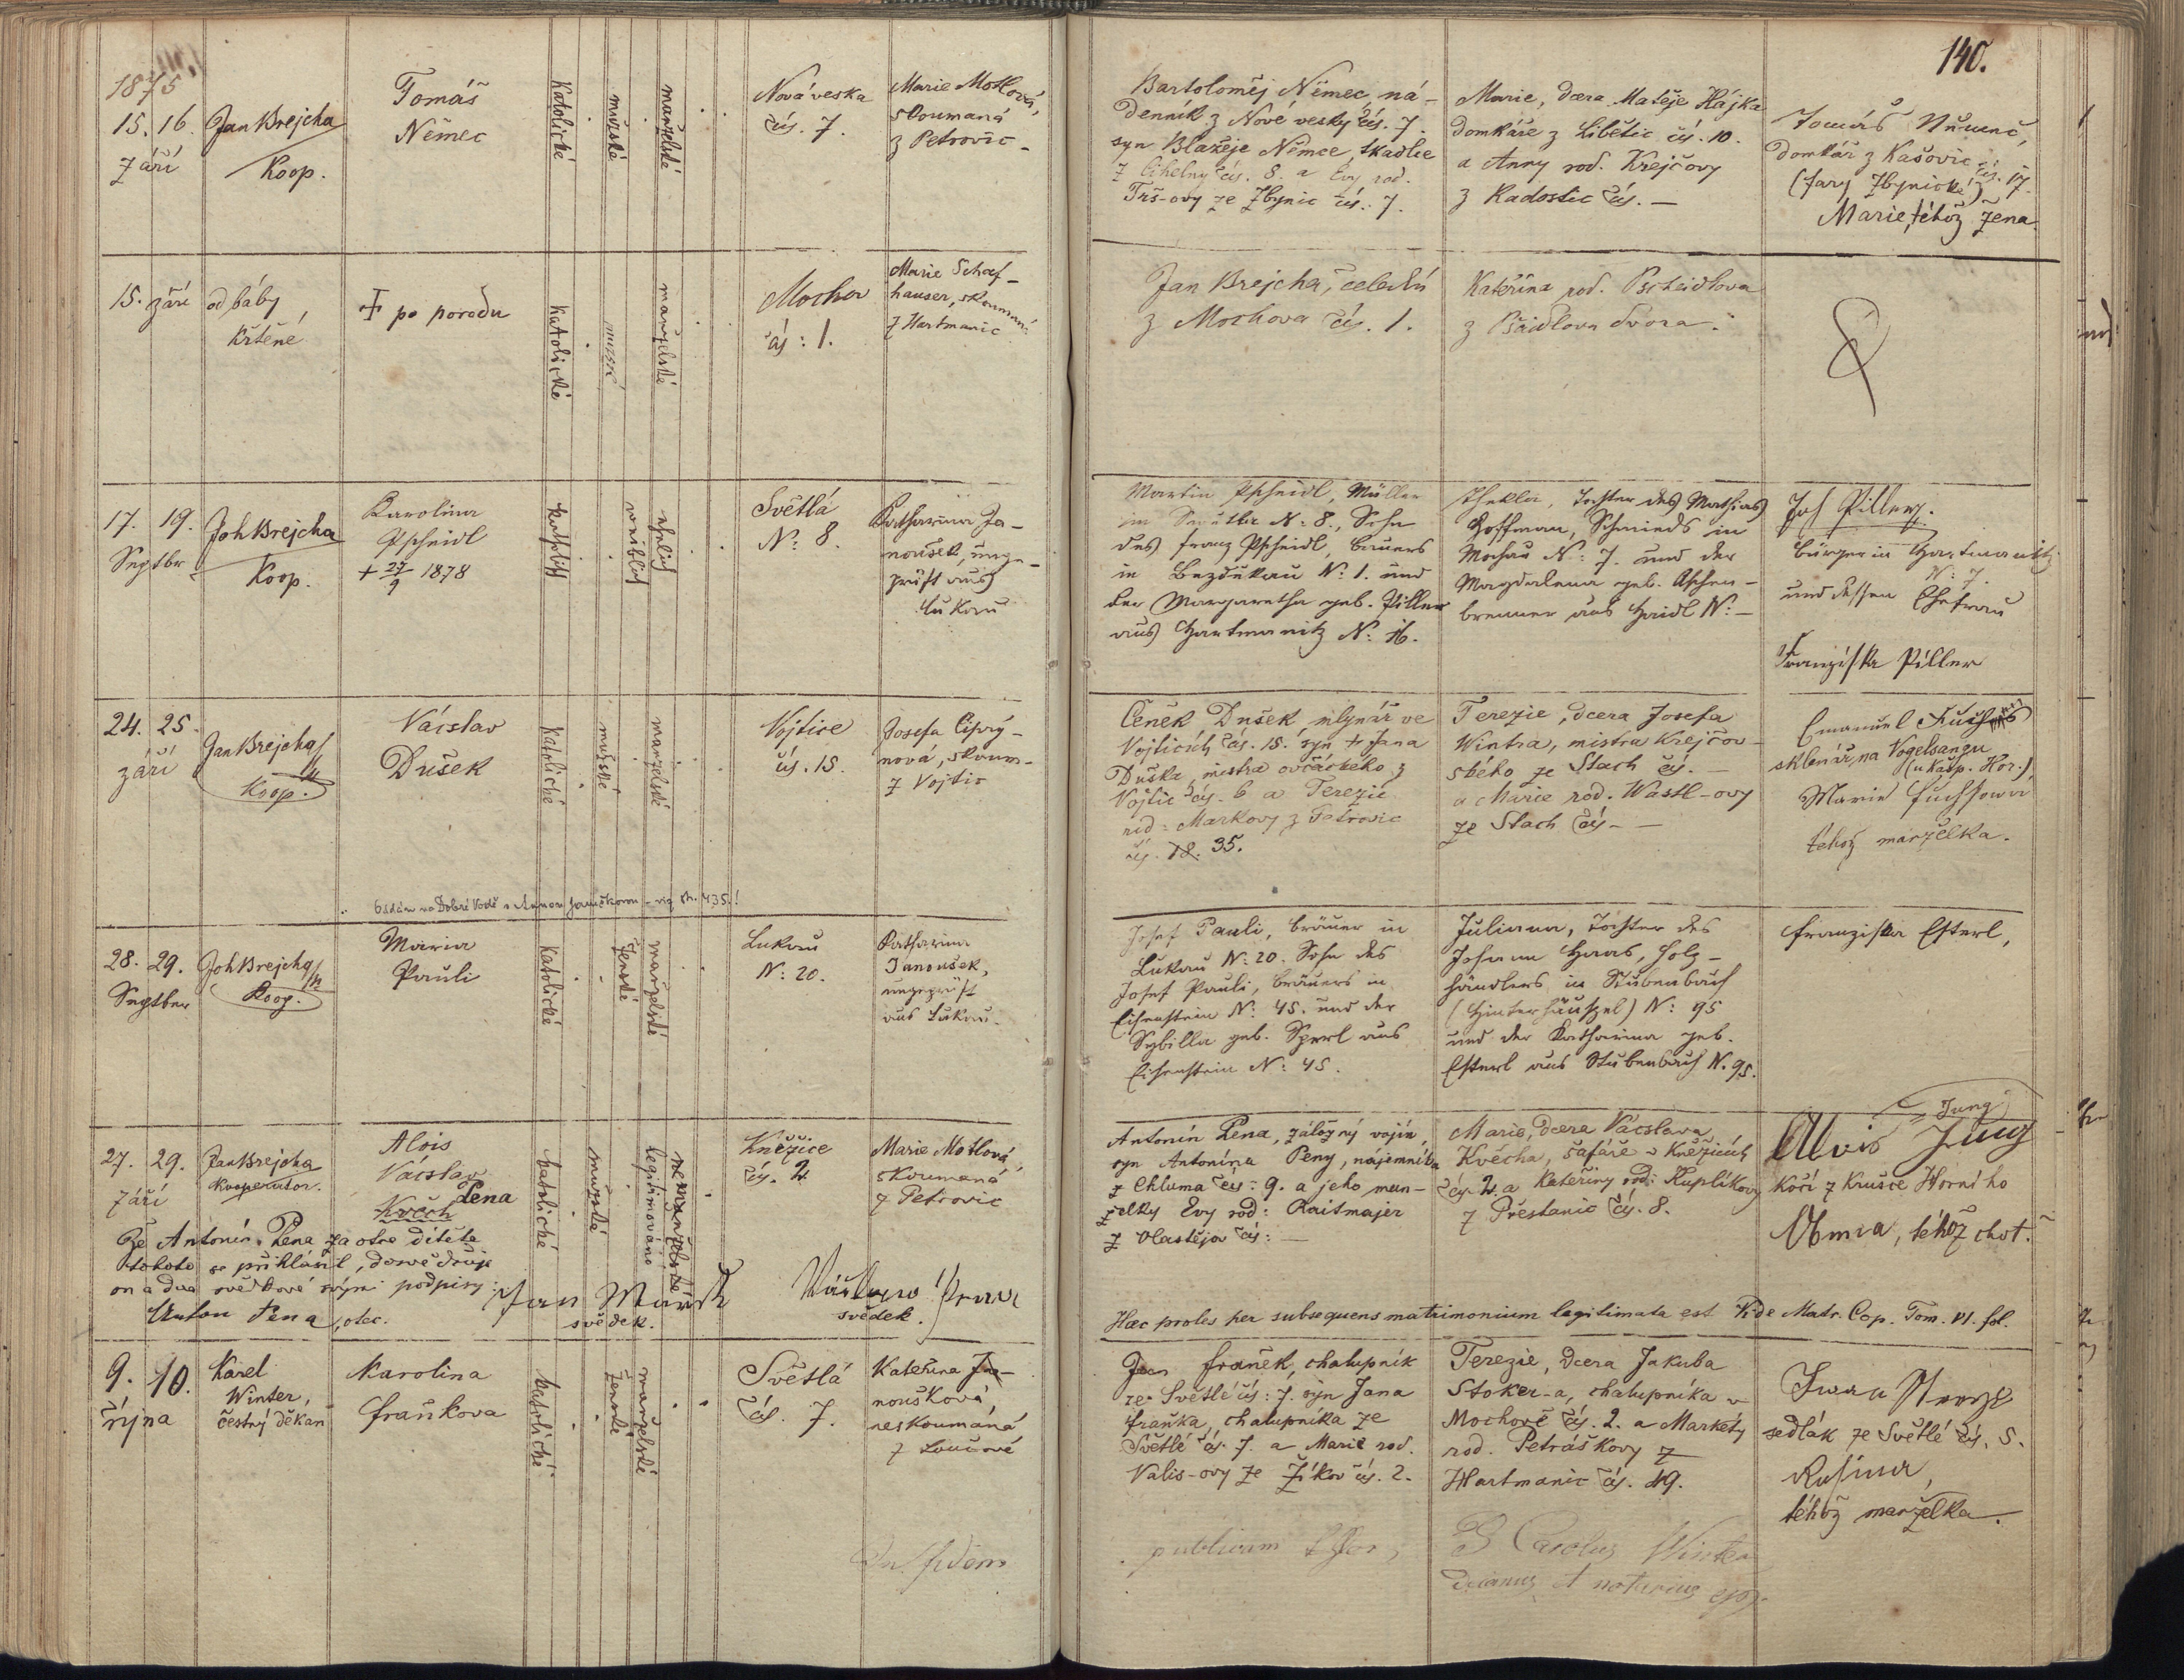 140.
1875
15. 16.
září
Jan Brejcha
Koop.
Tomáš
Němec
Katolické
mužské
manželské
Nová veska
čís. 7.
Marie Motlová,
skoumaná
z Petrovic
Bartoloměj Němec, ná-
denník z Nové vesky čís. 7.
syn Blažeje Němce, tkadlce
z Cihelny čís. 8. a Evy rod.
Trš-ovy ze Zbynic čís. 7.
Marie, dcera Matěje Hájka
domkáře z Libětic čís. 10.
a Anny rod. Krejčovy
z Radostic čís. —
Tomáš
domkář z Kašovic čís. 17.
(fary Zbynické)
Marie, téhož žena.
15. září
od báby
křtěné
† po porodu
Katolické
mužské
manželské
Mochov
čís: 1.
Marie Schaf-
hauser, skoumaná
z Hartmanic
Jan Brejcha, čeledín
z Mochova čís. 1.
Kateřina rod. Pscheidlova
z Pšeidlova dvora.
17. 19.
Septbr
Joh Brejcha
Koop.
Karolina
Pscheidl
+ 27/9 1878
katholisch
weiblich
ehelich
Světlá
N: 8.
Katharina Ja-
noušek, unge-
prüft aus
Lukau
Martin Pscheidl, Müller
in N: 8., Sohn
des Franz Pscheidl, Bauers
in Bezdukau N: 1. und
der Margaretha geb. Piller
aus Hartmanitz N: 16.
Thekla, Tochter des Mathias
Hoffman, Schmieds in
Mochau N: 7. und der
Magdalena geb. Aschen-
brenner aus Haidl N: —
Joh Piller,
Bürger in Hartmanitz
N: 7.
und dessen Ehefrau
Franziska Piller
24. 25.
září
Jan Brejcha
Koop.
Vácslav
Dušek
Katolické
mužské
manželské
Vojtice
čís. 15.
Josefa Cipry-
nová, skoum-
z Vojtic
Čeněk Dušek, mlynář ve
Vojticích čís. 15. syn + Jana
Duška, mistra ovčáckého z
Vojtic čís. 6 a Terezie
rod: Markovy z Petrovic
čís. 18. 35.
Terezie, dcera Josefa
Wintra, mistra krejčov-
ského ze Stach čís. —
a Marie rod. Wastl-ovy
ze Stach čís. —
Emanuel Fuchs
sklenář, na Vogelsangu
(u Kašp. Hor.)
Marie Fuchsowá
téhož manželka.
Oddán na Dobré Vodě s Annou Janečkovou - viz str. 435!
28. 29.
Septber
Joh Brejcha
Koop.
Maria
Pauli
Katolické
ženské
manželské
Lukau
N: 20.
Katharina
Janoušek,
ungeprüft
aus Lukau.
Josef Pauli, Bräuer in
Lukau N: 20. Sohn des
Josef Pauli, Bräuers in
Eisenstein N: 45. und der
Sybilla geb. Sperl aus
Eisenstein N: 45.
Juliana, Tochter des
Johann Haas, Holz-
händlers in Stubenbach
(Hinterhäuszel) N: 95
und der Katharina geb.
Esterl aus Stubenbach N. 95.
Franziska Esterl,
27. 29.
září
Jan Brejcha
Kooperator.
Alois
Vácslav
Pena
Květh
katolické
mužské
legitimováno
nemanželské
Kněžice
čís. 2.
Marie Motlová,
skoumaná
z Petrovic
Antonín Pena, záložný vojín,
syn Antonína Peny, nájemníka
z Chluma čís: 9. a jeho man-
želky Evy rod: Raitmajer
z Vlastějova čís: —
Marie, dcera Vácslava
Květha, šafáře v Kněžicích
čís. 2. a Kateřiny rod: Kuplíkovy
z Přestanic čís. 8.
Jung
Alois Jung
kočí z Krušce Horního
Anna, téhož choť.
Že Antonín Pena za otce dítěte
tohoto se přihlásil, dosvědčuje
on a dva svědkové svými podpisy:
Anton Pena, otec.
Jan Mareš
svědek.
svědek.
Haec proles per subsequens matrimonium legitimata est Vide Matr. Cop. Tom. VI. fol.
9. 10.
října
Karel
Winter,
čestný děkan
Karolina
Fraňkova
katolické
ženské
manželské
Světlá
čís. 7.
Kateřina Ja-
noušková
neskoumaná
z Loučové
Jan Franěk, chalupník
ze Světlé čís: 7. syn Jana
Fraňka, chalupníka ze
Světlé čís. 7. a Marie rod.
Valis-ovy ze Žíkov čís. 2.
Terezie, dcera Jakuba
Stoker-a, chalupníka v
Mochově čís. 2. a Markéty
rod. Petráškovy z
Hartmanic čís. 49.
sedlák ze Světlé čís. 5.
Rosina,
téhož manželka.
In fidem
publicam
P Carolus Winter
decanus et notarius epp.